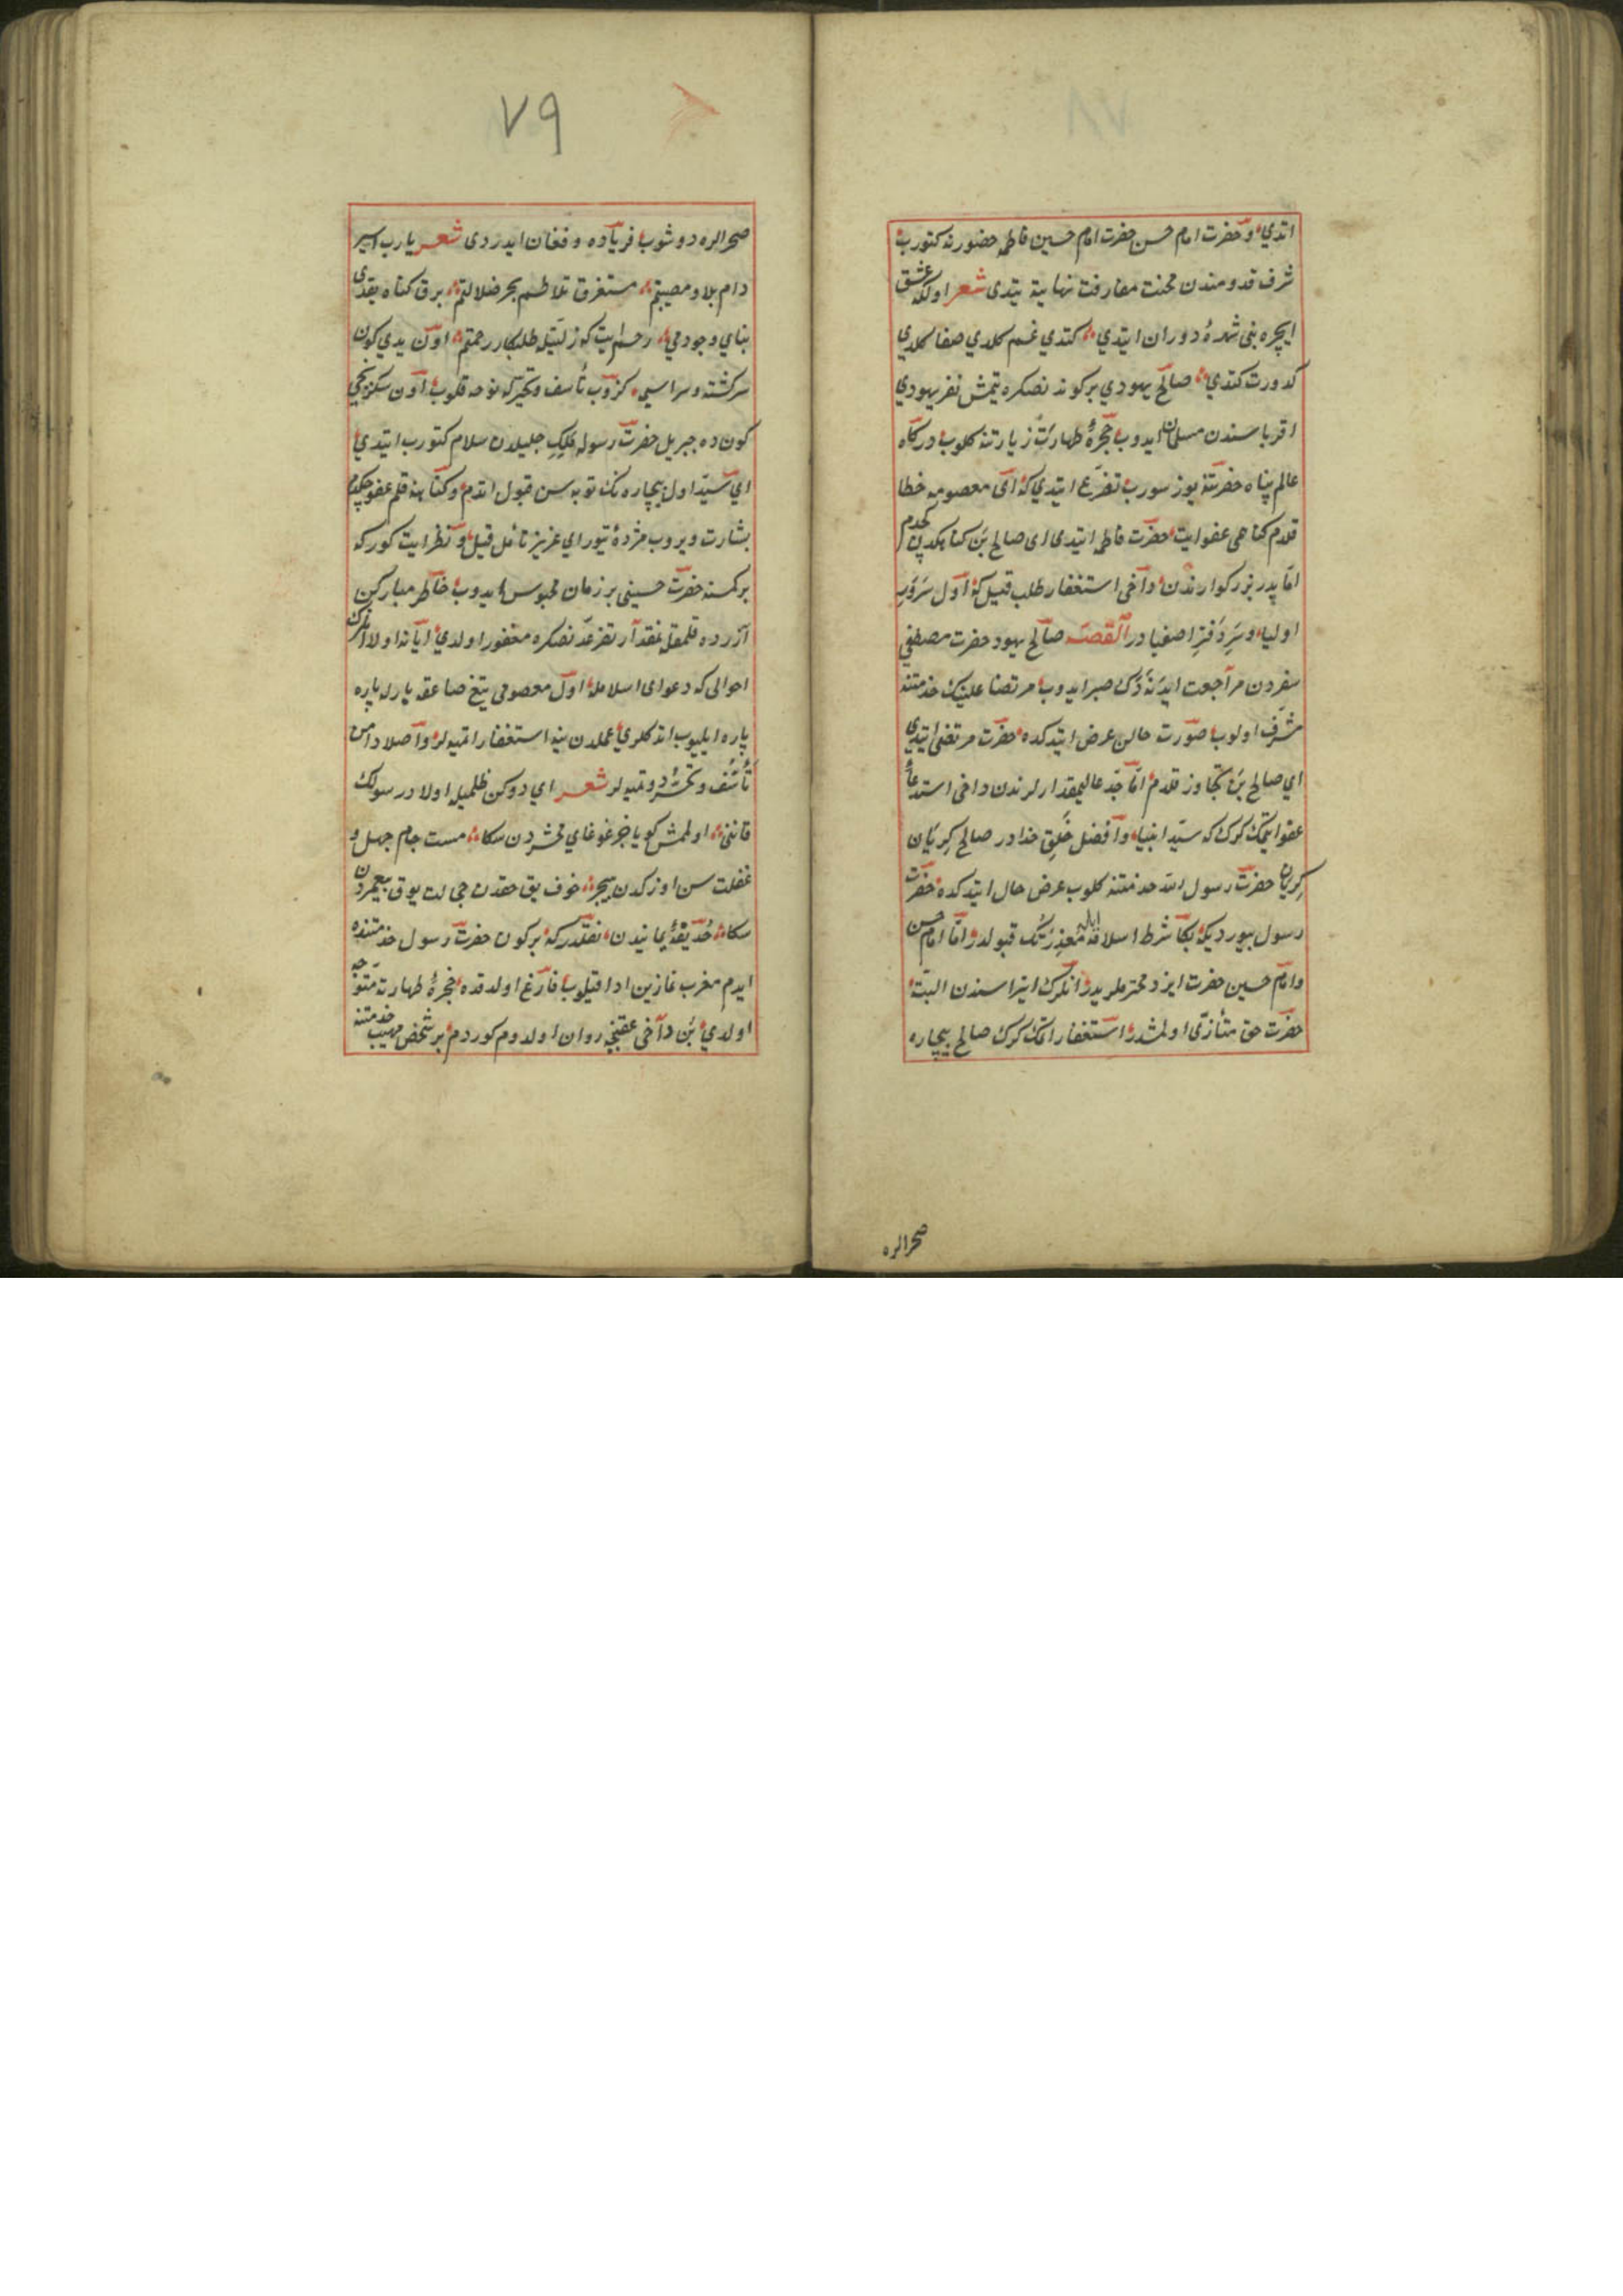 اتدي و حضرت امام حسن حضرت امام حسين فاطمه حضورنه كتورب
شرف قدومندن محنت مفارقت نهايته يتدى شعر اولكه عشق
ايچره بنى شهرۀ دوران ايتدي كتدي غم كلدي صفا كلدي
كدورت كتدي صالح يهودي بر كوندنصكره يتمش نفر يهودي
اقرباسندن مسلمان ايدوب حجرۀ طهارت زيارتنه كلوب دركاه
عالم پناه حضرتنه يوز سورب تضرع ايتدي كه اى معصومه خطا
قلدم كناهمى عفو ايت حضرت فاطمه ايتدى اى صالح بن كناهكدن كچدم
اما پدر بزركوارندن داخى استغفار طلب قيل كه اول سرور
اوليا و سردفتر اصفيا در القصه صالح يهود حضرت مصطفى
سفردن مراجعت ايدنه دك صبر ايدوب مرتضا علينك خدمتنه
مشرف اولوب صورت حالن عرض ايتدكده حضرت مرتضى ايتدي
اي صالح بن تجاوز قلدم اما جد عاليمقدارلرندن داخى استدعا
عفو ايتمك كرك كه سيد انبيا و افضل خلق خدا در صالح كريان
كريان حضرت رسول الله خدمتنه كلوب عرض حال ايتدكده حضرت
رسول بيورديكه بكا شرط اسلامله معذرتك قبولدر اما امام حسن
و امام حسين حضرت ايزد محترملريدر انلرك ايذاسندن البته
حضرت حق متأذى اولمشدر استغفار اتمك كرك صالح بيچاره
صحرالره
٧٩
صحرالره دوشوب فرياده و فغان ايدردى شعر يارب اسير
دام بلا و مصيبتم مستغرق تلاطم بحر ضلالتم برق كناه يقدى
بناي وجودمي رحم ايت كه ذلتيله طلبكار رحمتم اون يدي كون
سركشته و سراسيمه كزوب تأسف و تحيرله نوحه قلوب اون سكزنجي
كون ده جبريل حضرت رسوله ملك جليلدن سلام كتورب ايتدي
اي سيد اول بيچاره نك توبه سن قبول اتدم و كناهنه قلم عفو چكدم
بشارت ويروب مژدۀ يتور اي عزيز تأمل قيل و نظر ايت كور كه
بر كمسنه حضرت حسينى بر زمان محبوس ايدوب خاطر مباركن
آزرده قلمقله نقدر تضرعدنصكره مغفور اولدي ايا نه اولا انلرك
احوالى كه دعواى اسلامله اول معصومى تيغ صاعقه بارله پاره
پاره ايليوب اتدكلري عملدن ينه استغفار اتميه لر و اصلا دامن
تأسف و تحسر دوتميه لر شعر اي دوكن ظلميله اولاد رسولك
قاننى اولمش كويا خبر غوغاي محشردن سكا مست جام جهل و
غفلت سن اوزكدن بيخبر خوف يق حقدن خجالت يوق پيغمبردن
سكا حذيقۀ يمانيدن نقلدر كه بر كون حضرت رسول خدمتنده
ايدم مغرب نمازين ادا قيلوب فارغ اولدقده حجرۀ طهارته متوجه
اولدي بن داخى عقبنجه روان اولدوم كوردم بر شخص مهيب خدمتنه